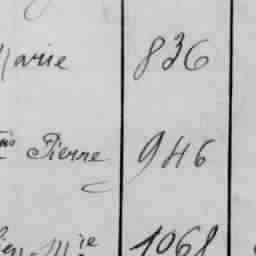 Marie 836
Pierre 946
Mie 1068